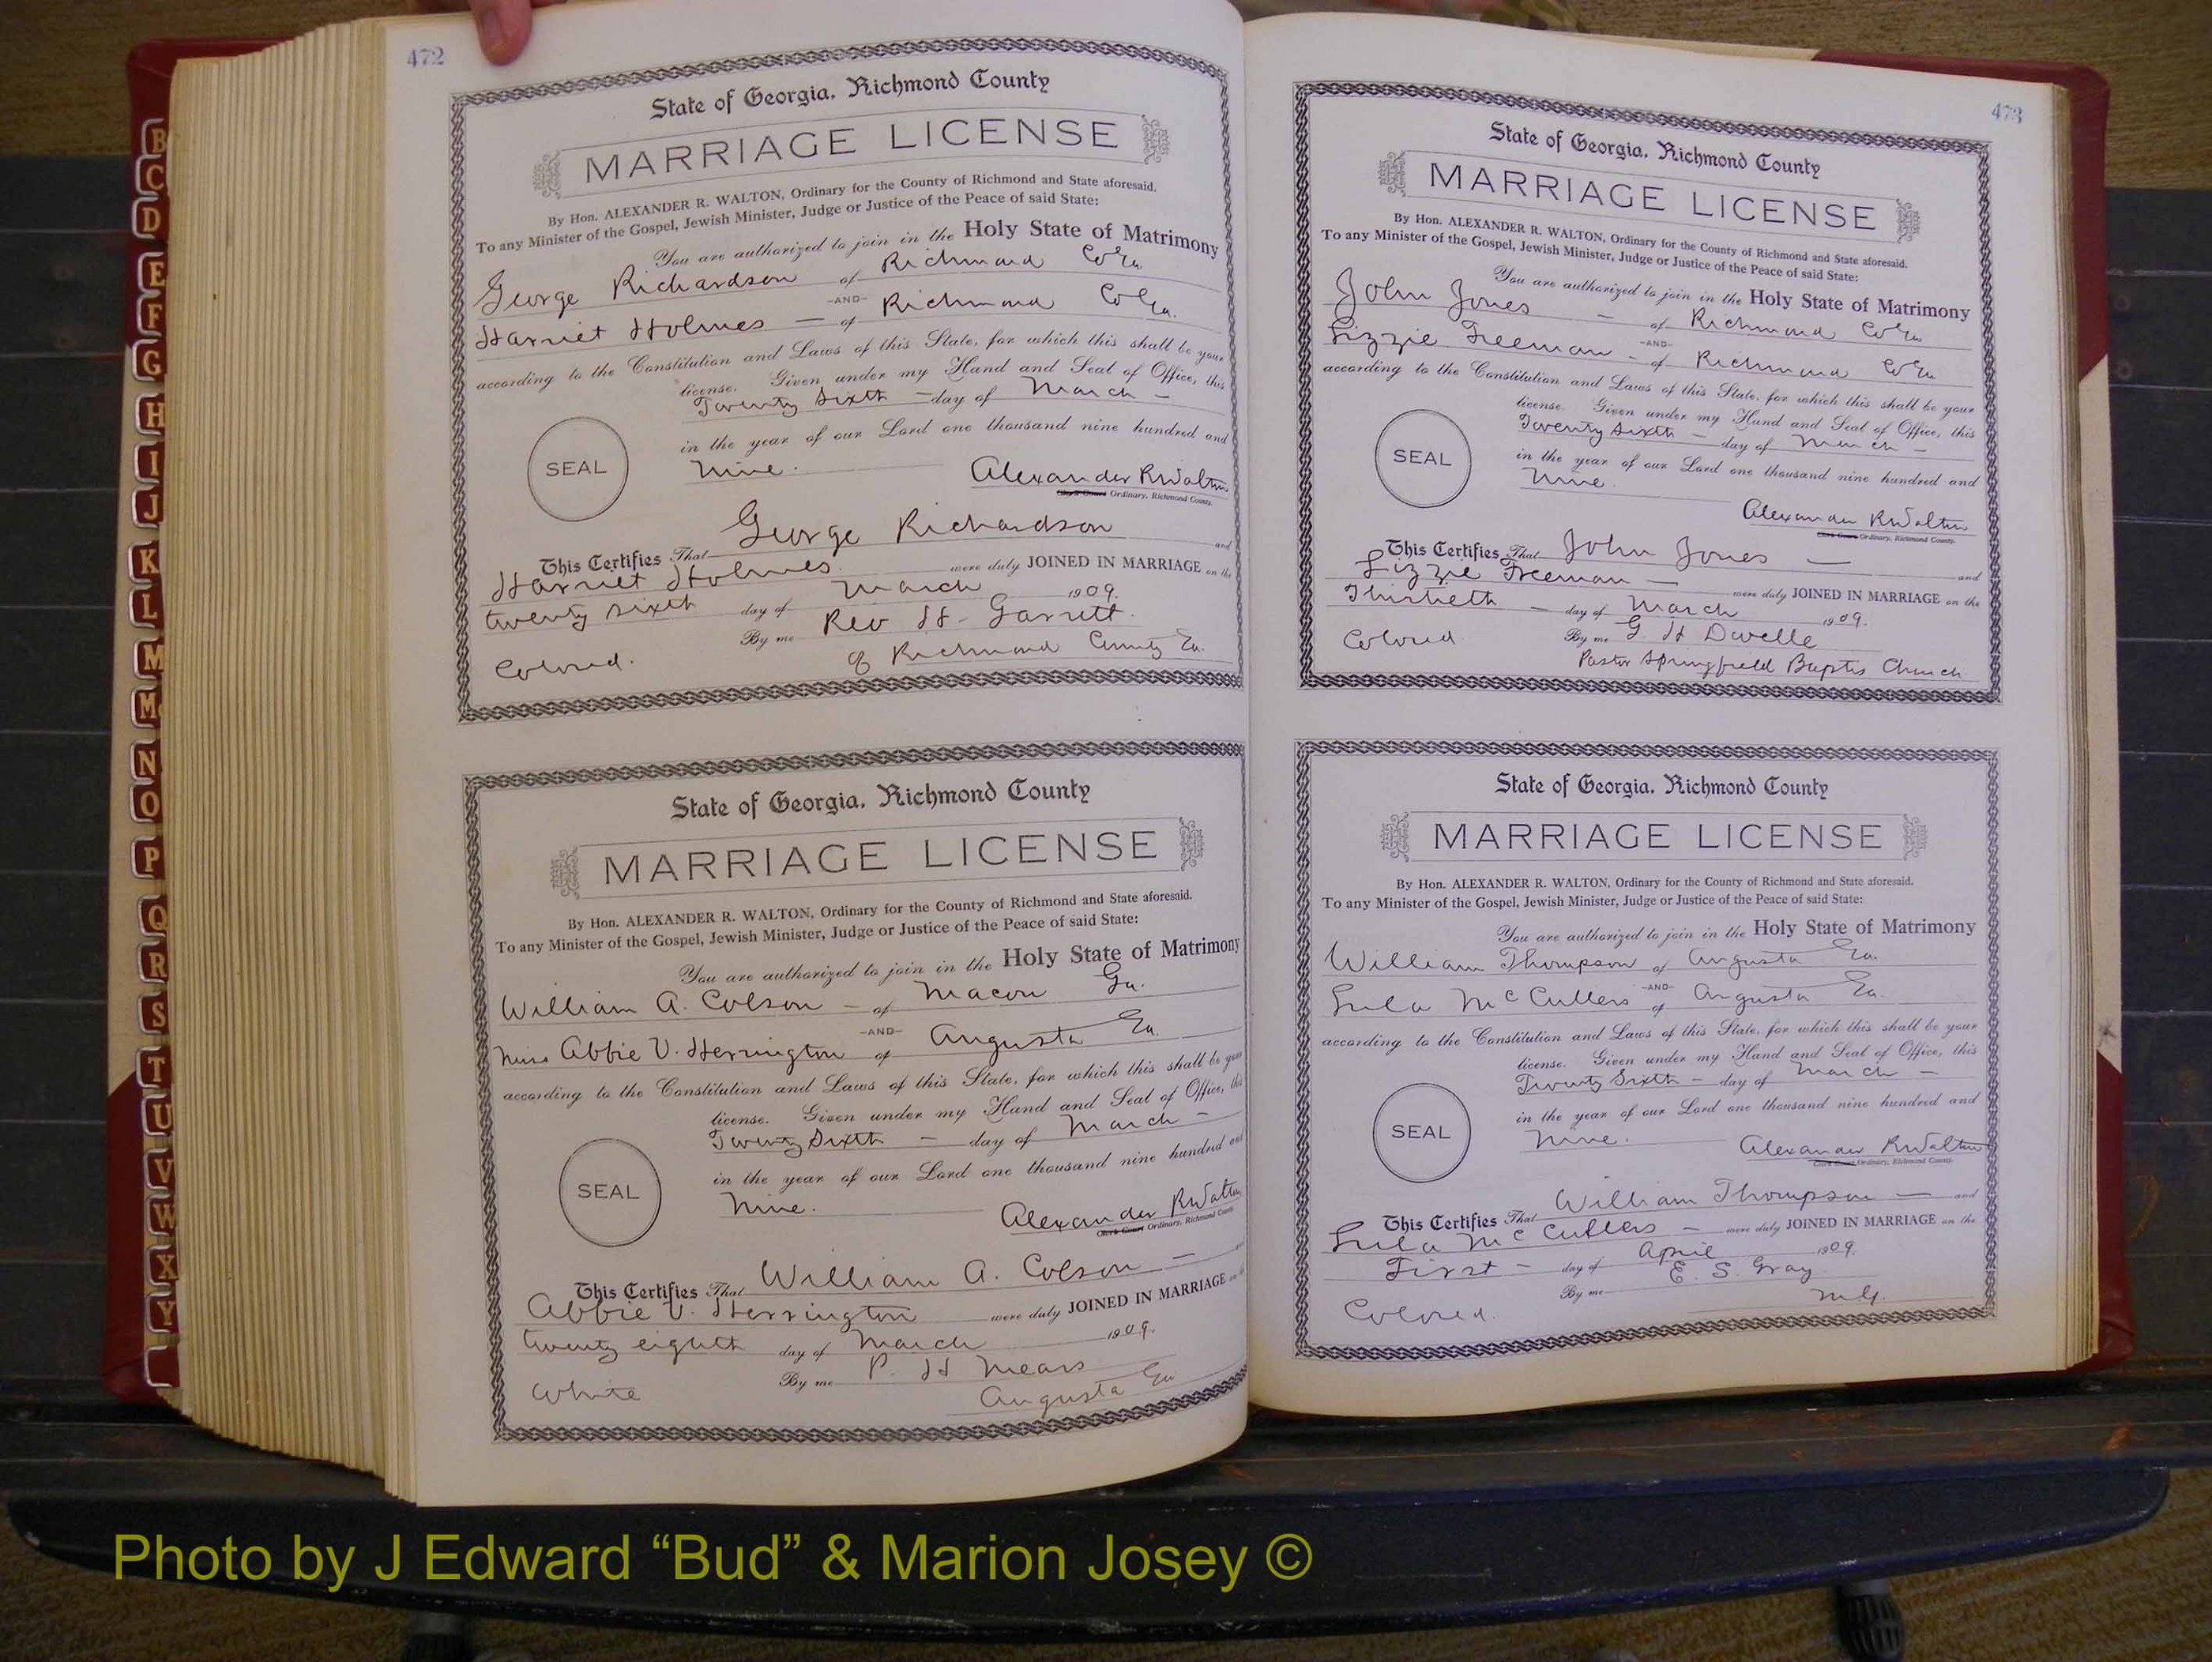 472
State of Georgia, Richmond County
MARRIAGE LICENSE
By Hon. ALEXANDER R. WALTON, Ordinary for the County of Richmond and State aforesaid.
To any Minister of the Gospel, Jewish Minister, Judge or Justice of the Peace of said State:
You are authorized to join in the Holy State of Matrimony
George Richardson of Richmond Co Ga
-AND-
Harriet Holmes — of Richmond Co Ga.
according to the Constitution and Laws of this State, for which this shall be your
license. Given under my Hand and Seal of Office, this
Twenty Sixth — day of March —
in the year of our Lord one thousand nine hundred and
Nine.
SEAL
Alexander R Walton
Clerk Court Ordinary, Richmond County.
This Certifies That George Richardson and
Harriet Holmes. were duly JOINED IN MARRIAGE on the
twenty sixth day of March 1909.
By me Rev H. Garrett.
Colored. of Richmond County Ga.
State of Georgia, Richmond County
MARRIAGE LICENSE
By Hon. ALEXANDER R. WALTON, Ordinary for the County of Richmond and State aforesaid.
To any Minister of the Gospel, Jewish Minister, Judge or Justice of the Peace of said State:
You are authorized to join in the Holy State of Matrimony
William A. Colson — of Macon Ga.
-AND-
Miss Abbie V. Herrington of Augusta Ga.
according to the Constitution and Laws of this State, for which this shall be your
license. Given under my Hand and Seal of Office, this
Twenty Sixth — day of March —
in the year of our Lord one thousand nine hundred and
Nine.
SEAL
Alexander R Walton
Clerk Court Ordinary, Richmond County
This Certifies That William A. Colson — and
Abbie V. Herrington were duly JOINED IN MARRIAGE on the
twenty eighth day of March 1909.
By me P. H Mears
White Augusta Ga
473
State of Georgia, Richmond County
MARRIAGE LICENSE
By Hon. ALEXANDER R. WALTON, Ordinary for the County of Richmond and State aforesaid.
To any Minister of the Gospel, Jewish Minister, Judge or Justice of the Peace of said State:
You are authorized to join in the Holy State of Matrimony
John Jones — of Richmond Co Ga
-AND-
Lizzie Freeman — of Richmond Co Ga
according to the Constitution and Laws of this State, for which this shall be your
license. Given under my Hand and Seal of Office, this
Twenty Sixth — day of March —
in the year of our Lord one thousand nine hundred and
Nine.
SEAL
Alexander R Walton
Clerk Court Ordinary, Richmond County.
This Certifies That John Jones — and
Lizzie Freeman — were duly JOINED IN MARRIAGE on the
Thirtieth — day of March 1909.
Colored By me G. H Dwelle
Pastor Springfield Baptis Church
State of Georgia, Richmond County
MARRIAGE LICENSE
By Hon. ALEXANDER R. WALTON, Ordinary for the County of Richmond and State aforesaid.
To any Minister of the Gospel, Jewish Minister, Judge or Justice of the Peace of said State:
You are authorized to join in the Holy State of Matrimony
William Thompson of Augusta Ga.
-AND-
Lula McCullers of Augusta Ga.
according to the Constitution and Laws of this State, for which this shall be your
license. Given under my Hand and Seal of Office, this
Twenty Sixth — day of March —
in the year of our Lord one thousand nine hundred and
Nine.
SEAL
Alexander R Walton
Clerk Court Ordinary, Richmond County.
This Certifies That William Thompson — and
Lula McCullers — were duly JOINED IN MARRIAGE on the
First — day of April 1909.
By me E. S. Gray
Colored. M.G.
B
C
D
E
F
G
H
I
J
K
L
M
Mc
N
O
P
Q
R
S
T
U
V
W
X
Y
Photo by J Edward “Bud” & Marion Josey ©